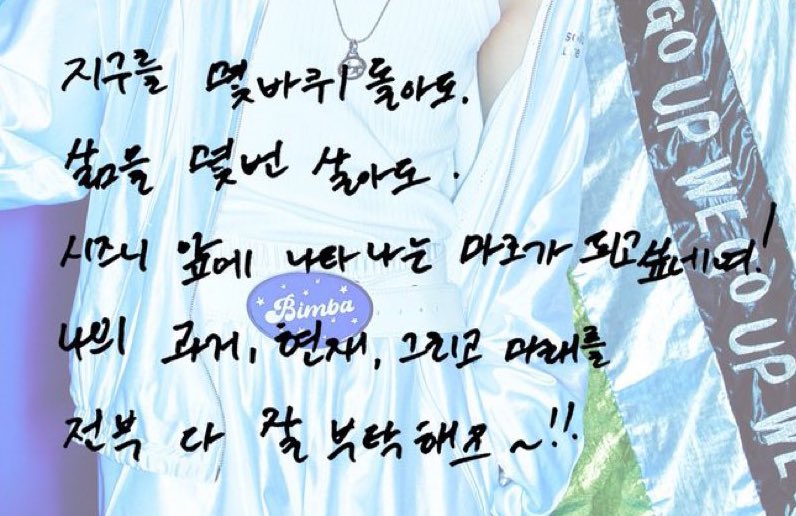 지구를 몇바퀴 돌아도.
삶을 몇년 살아도.
시즈니 앞에 나타나는 마크가 되고싶네여!
나의 과거, 현재, 그리고 미래를
전부 다 잘 부탁해요~!!
Bimba
GO UP WE GO UP WE